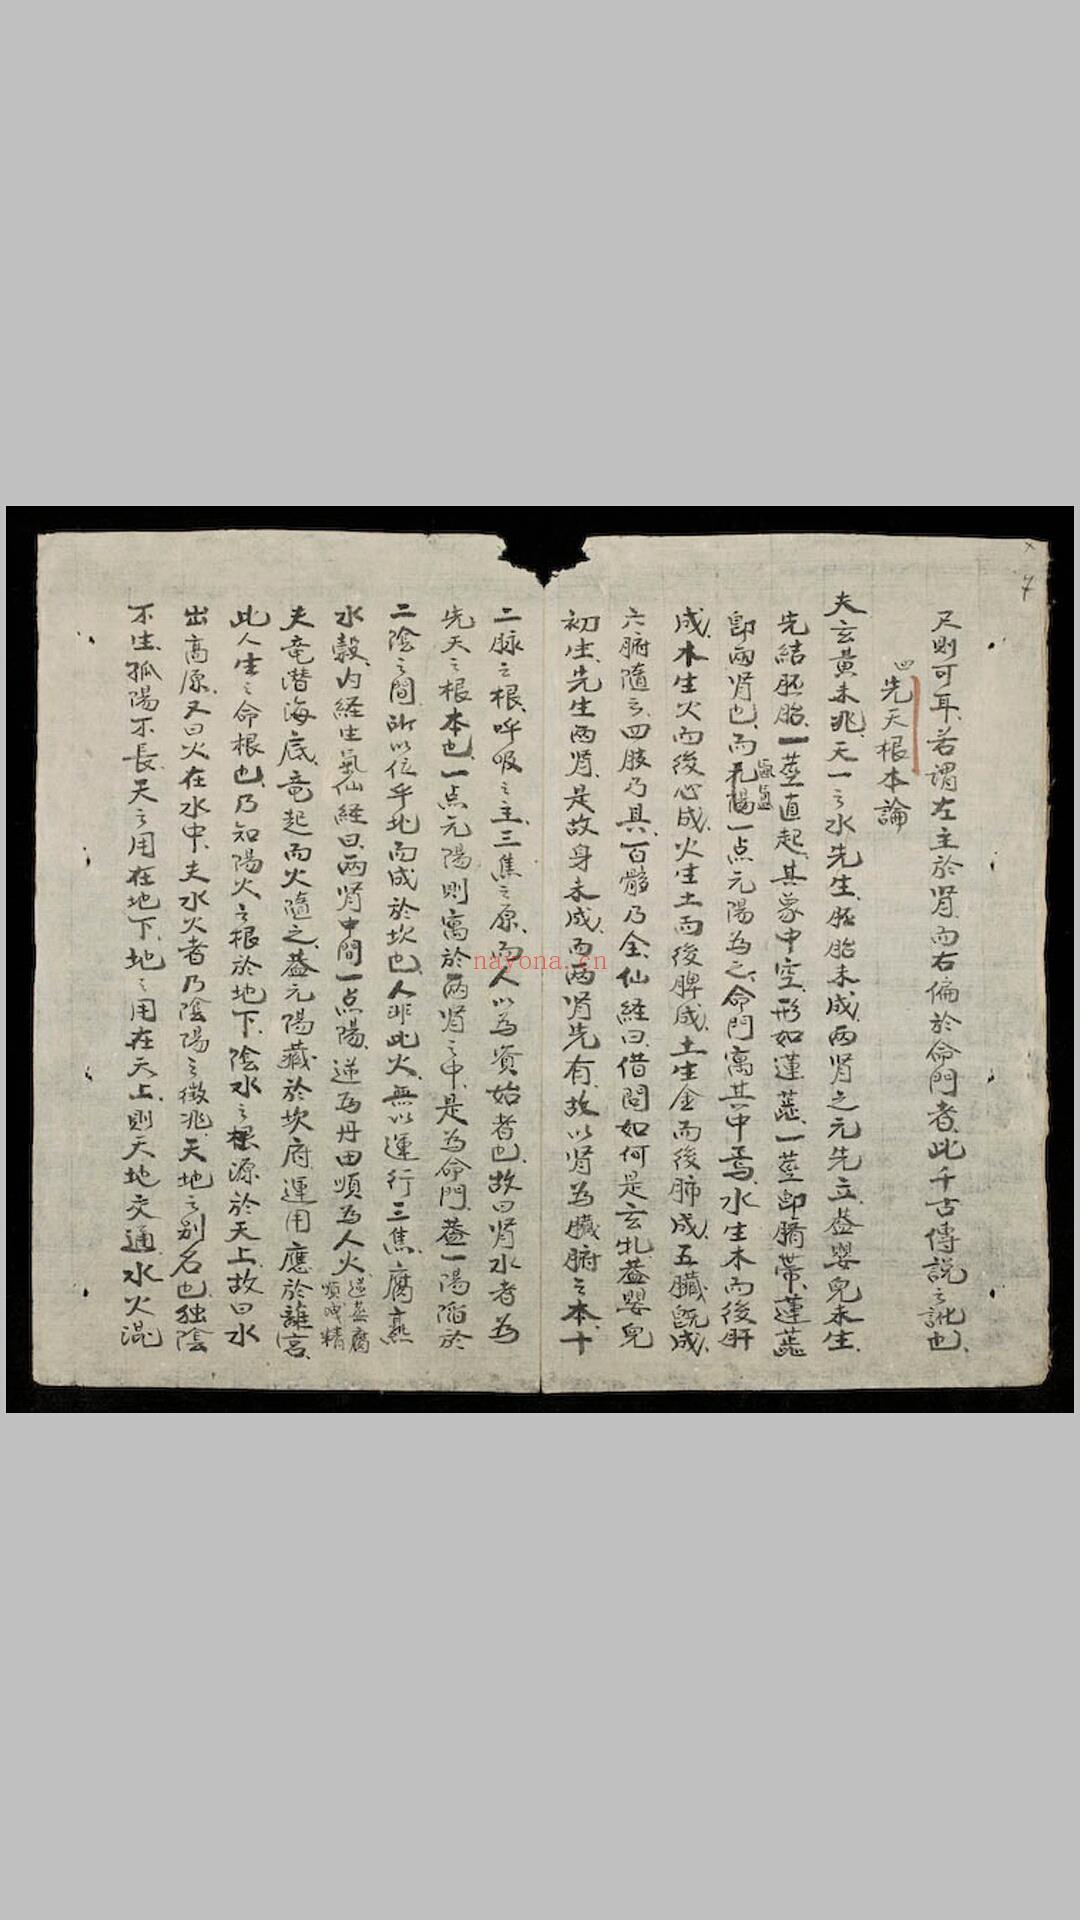 7
尺則可耳、若謂左主於肾、而右偏於命門者、此千古傳説之訛也、
四先天根本論
夫玄黄未兆、天一之水先生、胚胎未成、两肾之元先立、盖嬰兒未生、
先結胚胎、一莖直起、其象中空、形如蓮蕊、一莖即臍帶、蓮蕊
即兩肾也、而一点元陽為之、命門寓其中焉、水生木而後肝
成、木生火而後心成、火生土而後脾成、土生金而後肺成、五臟既成、
六腑隨之、四肢乃具、百骸乃全、仙経曰、借問如何是玄牝、盖嬰兒
初生、先生两肾、是故身未成、而两肾先有、故以肾為臟腑之本、十
二脉之根、呼吸之主、三焦之原、而人以為資始者也、故曰肾水者為
先天之根本也、一点元陽則寓於两肾之中、是為命門、盖一陽陷於
二陰之間、所以位乎北而成於坎也、人非此火、無以運行三焦、腐熟
水穀、内経生氣仙経曰、两肾中間一点陽、逆為丹田順為人火
順洩精
夫竜潜海底、竜起而火隨之、盖元陽藏於坎府、運用應於離宮、
此人生之命根也、乃知陽火之根於地下、陰水之根源於天上、故曰水
出高原、又曰火在水中、夫水火者乃陰陽之徴兆、天地之別名也、独陰
不生、孤陽不長、天之用在地下、地之用在天上、則天地交通、水火混
nayona.cn